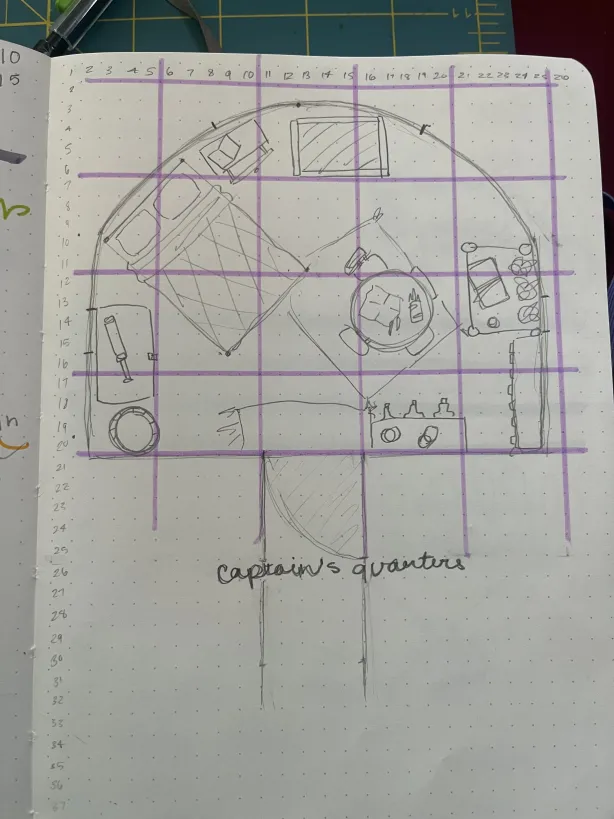 10
15
11
1 2 3 4 5 6 7 8 9 10 11 12 13 14 15 16 17 18 19 20 21 22 23 24 25 26
2
3
4
5
6
7
8
9
10
11
12
13
14
15
16
17
18
19
20
21
22
23
24
25
26
27
28
29
30
31
32
33
34
35
36
37
captain's quarters